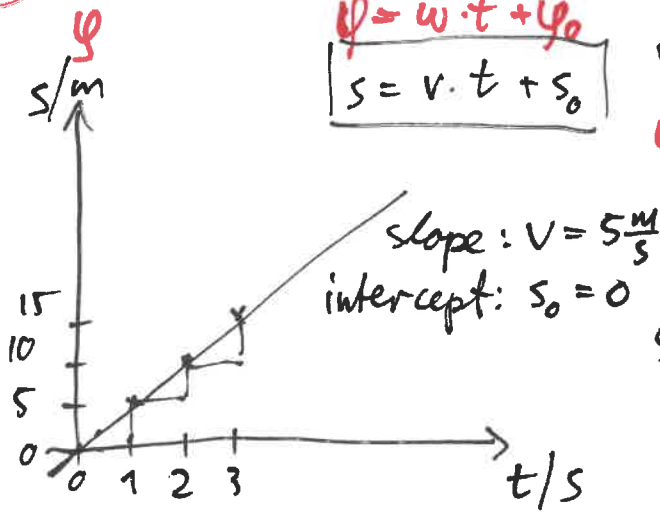 φ
s/m
φ = ω · t + φ₀
s = v · t + s₀
slope: v = 5 m/s
intercept: s₀ = 0
15
10
5
0
0 1 2 3
t/s